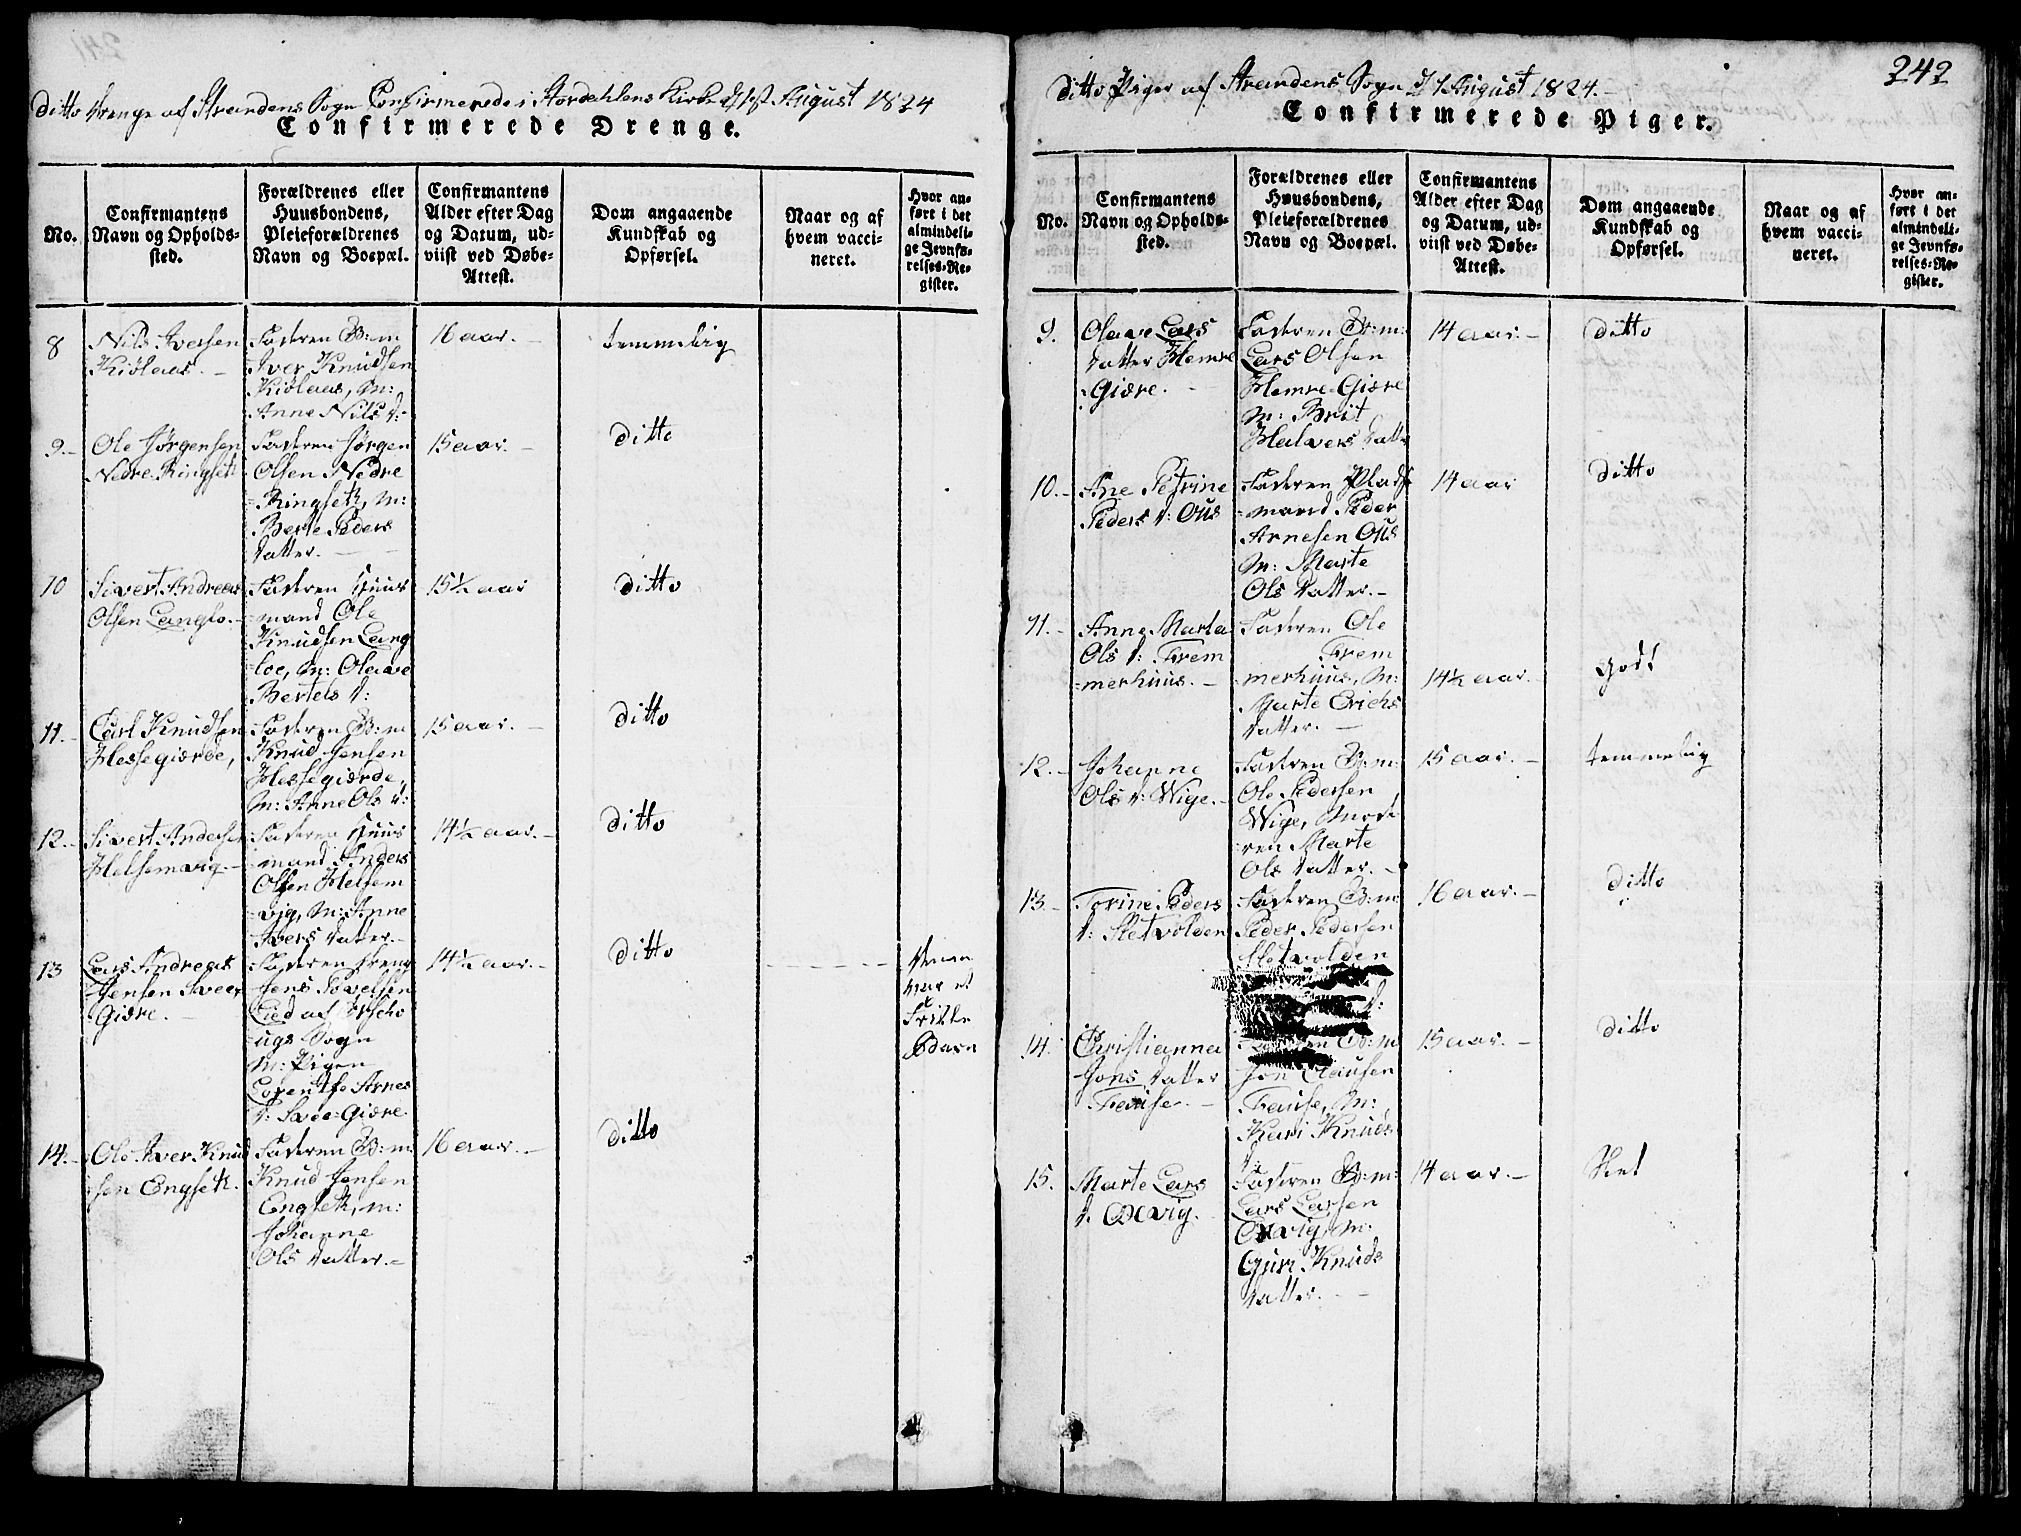 ditto Drenge af Strandens Sogn Confirmerede i Stordahlens Kirke d 1st August 1824
Confirmerede Drenge.
No.
Confirmantens
Navn og Opholds-
sted.
Forældrenes eller
Huusbondens,
Pleieforældrenes
Navn og Boepæl.
Confirmantens
Alder efter Dag
og Datum, ud-
viist ved Døbe-
Attest.
Dom angaaende
Kundskab og
Opførsel.
Naar og af
hvem vacci-
neret.
Hvor an-
ført i det
almindeli-
ge Jevnfø-
relses-Re-
gister.
8
Nils Iversen
Kiølaas. -
Faderen B:m:
Iver Knudsen
Kiølaas, M:
Anne Nils d:
16 aar. -
temmelig
9. -
Ole Jørgensen
Nedre-Ringseth
Faderen Jørgen
Olsen Nedre
-Ringseth, M:
Berte Peders
datter. -
15 aar. -
ditto
10
Sivert Andreas
Olsen Langlo. -
Faderen Huus
-mand Ole
Knudsen Lang
loe, M: Olave
Bertels d:
15½ aar
ditto
11. -
Carl Knudsen
Hessegiærde,
Faderen B:m
Knud Jensen
Hessegiærde,
M: Anne Ols d:
15 aar. -
ditto
12. -
Sivert Andersen
Helsemvig. -
Faderen Huus
-mand Anders
Olsen Helsem
-vig, M: Anne
Ivers datter. -
14½ aar. -
ditto
13
Lars Andreas
Jensen Svee
Giære. -
Faderen Dreng
Jens Povelsen
Lied af Ørscho
ugs Sogn
M: Pigen
Lorentse Arnes
d: Svee-Giære.
14½ aar. -
ditto
14. -
Ole Iver Knud
sen Engseth.
Faderen B:m
Knud Jensen
Engseth, M:
Johanne
Ols datter. -
16 aar. -
ditto
242
Ditto Piger af Strandens Sogn d 1 August 1824. -
Confirmerede Piger.
No.
Confirmantens
Navn og Opholds-
sted.
Forældrenes eller
Huusbondens,
Pleieforældrenes
Navn og Boepæl.
Confirmantens
Alder efter Dag
og Datum, ud-
viist ved Døbe-
Attest.
Dom angaaende
Kundskab og
Opførsel.
Naar og af
hvem vacci-
neret.
Hvor an-
ført i det
almindeli-
ge Jevnfø-
relses-Re-
gister.
9.
Olave Lars
datter Hemre
Giære. -
Faderen B:m:
Lars Olsen
Hemre-Giære
M: Briit
Halvers datt
14 aar. -
ditto
10. -
Ane Petrine
Peders d: Ous
Faderen Plads
-mand Peder
Arnesen Ous
M: Marte
Ols datter. -
14 aar
ditto
11. -
Anne Marta
Ols d: Frem
-merhuus. -
Faderen Ole
Frem
-merhuus, M:
Marte Erichs
datter. -
14½ aar.
Godt
12. -
Johanne
Ols d: Wige. -
Faderen B:m:
Ole Pedersen
Wige, Mode
-ren Marte
Ols datter. -
15 aar. -
temmelig
13. -
Torine Peders
d: Sletvolden
Faderen B:m:
Peder Pedersen
Sletvolden
d:
16 aar. -
ditto
14.
Christianna
Jons datter
Fause. -
B:m
Jon Clausen
Fause, M:
Kari Knuds
d:
15 aar. -
ditto
15.
Marte Lars
d. Oxvig.
Faderen B:m:
Lars Larsen
Oxvig, M:
Guri Knuds
datter. -
14 aar. -
Slet